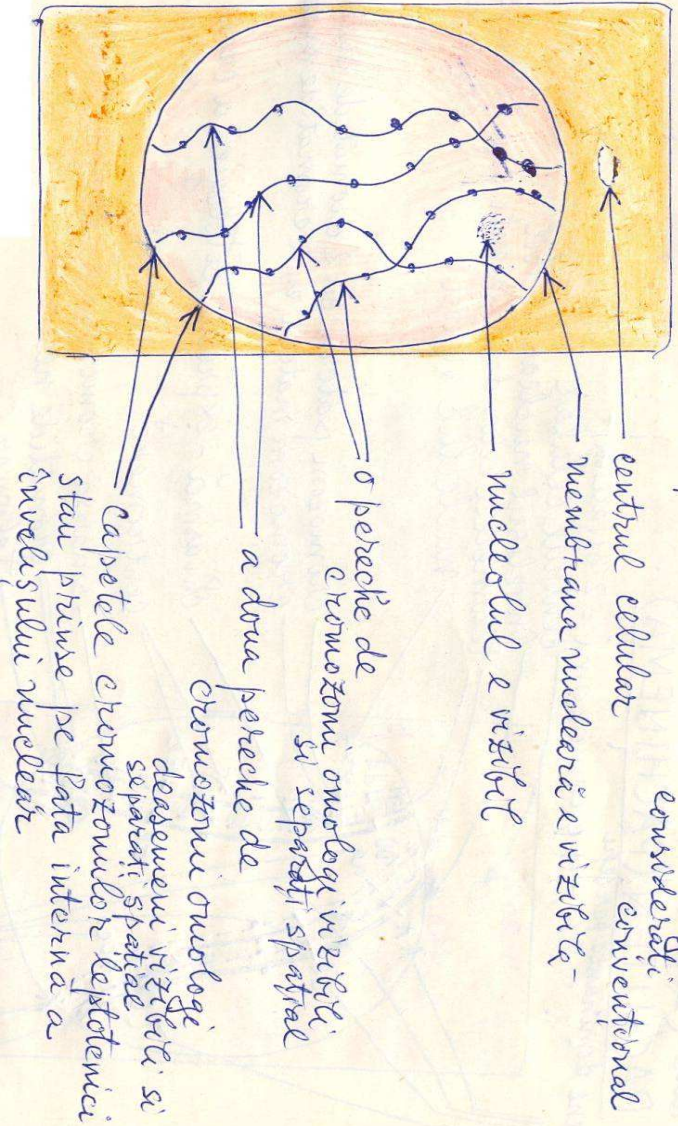 considerați
convențional
centrul celular
membrana nucleară e vizibilă
nucleolul e vizibil
o pereche de
cromozomi omologi vizibili
si separați spațial
a doua pereche de
cromozomi omologi
deasemeni vizibili si
separați spatial
capetele cromozomilor leptotenici
stau prinse pe fata interna a
învelișului nuclear